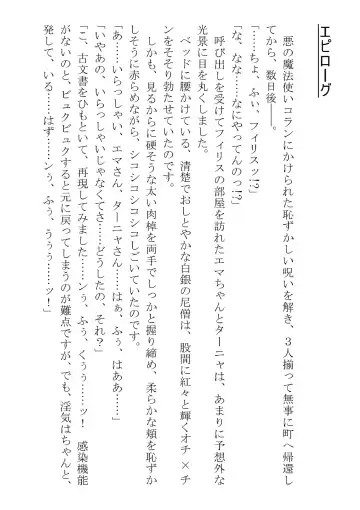 エピローグ
　悪の魔法使いコランにかけられた恥ずかしい呪いを解き、３人揃って無事に町へ帰還し
てから、数日後――。
「……ちょ、ふぃ、フィリスッ!?」
「な、なな……なにやってんのっ!?」
　呼び出しを受けてフィリスの部屋を訪れたエマちゃんとターニャは、あまりに予想外な
光景に目を丸くしました。
　ベッドに腰かけている、清楚でおしとやかな白銀の尼僧は、股間に紅々と輝くオチ×チ
ンをそそり勃たせていたのです。
　しかも、見るからに硬そうな太い肉棒を両手でしっかと握り締め、柔らかな頬を恥ずか
しそうに赤らめながら、シコシコシコシコしごいていたのです。
「あ……いらっしゃい、エマさん、ターニャさん……はぁ、ふぅ、はああ……」
「いやあの、いらっしゃいじゃなくてさ……どうしたの、それ？」
「こ、古文書をひもといて、再現してみました……ンぅ、ふぅ、くぅぅ……ッ！　感染機能
がないのと、ビュクビュクすると元に戻ってしまうのが難点ですが、でも、淫気はちゃんと、
発して、いる……はず……ンぅ、ふぅ、うぅぅ……ッ！」